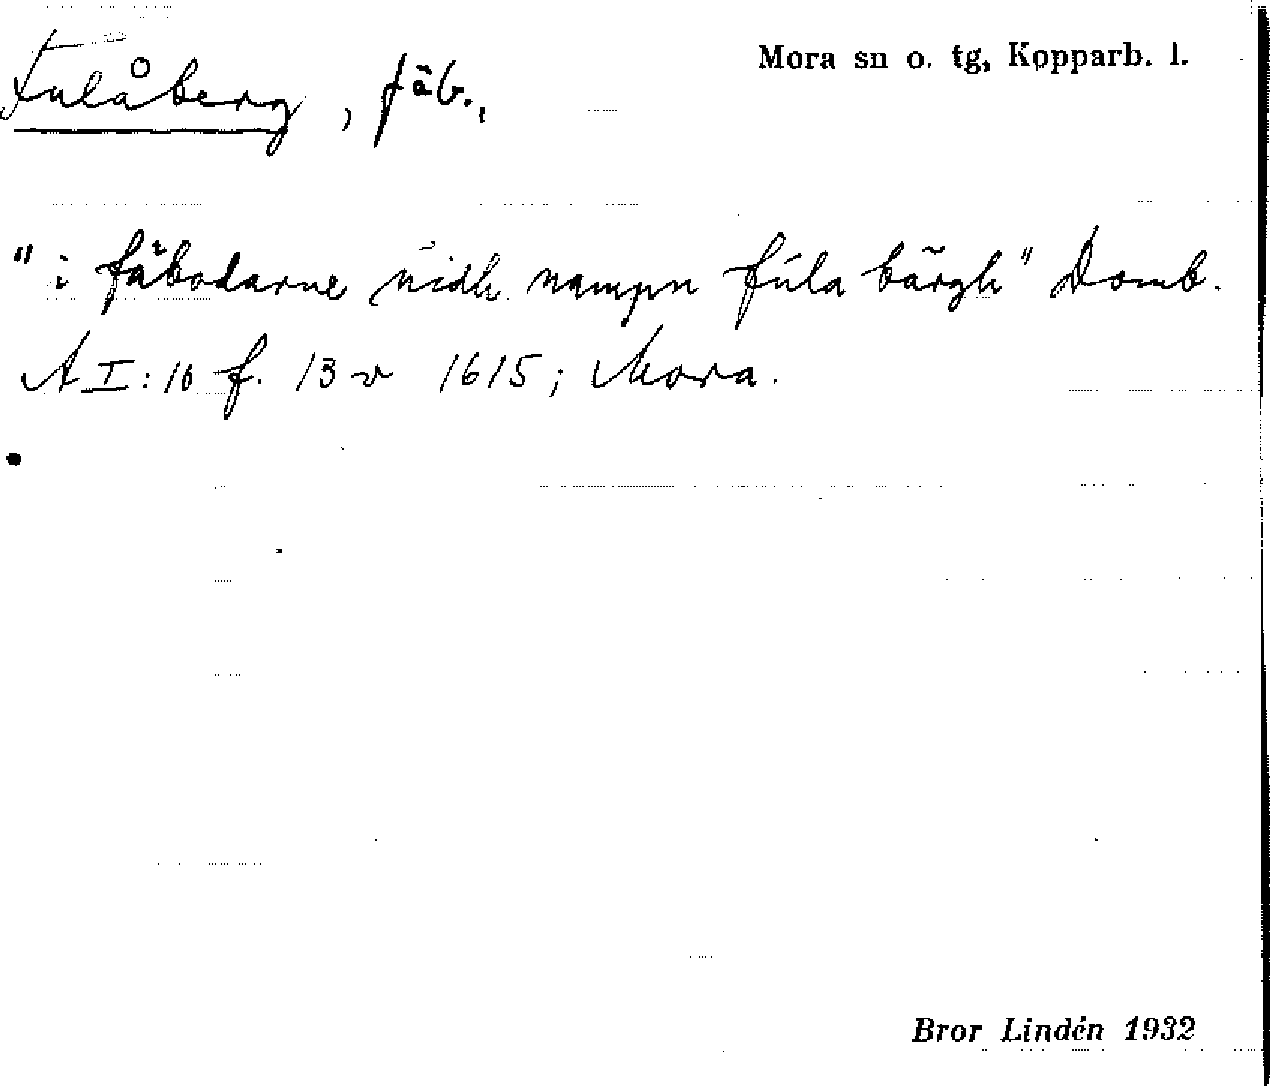 Mora sn o. tg, Kopparb. l.
Fulåberg, fäb.,
"i fäbodarne nidh nampn fúla bärgh" Domb.
A I: 16 f. 13 v 1615; Mora.
Bror Lindén 1932